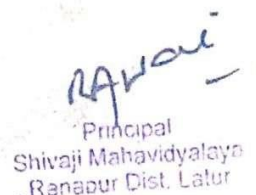 Principal
Shivaji Mahavidyalaya
Renapur Dist. Latur